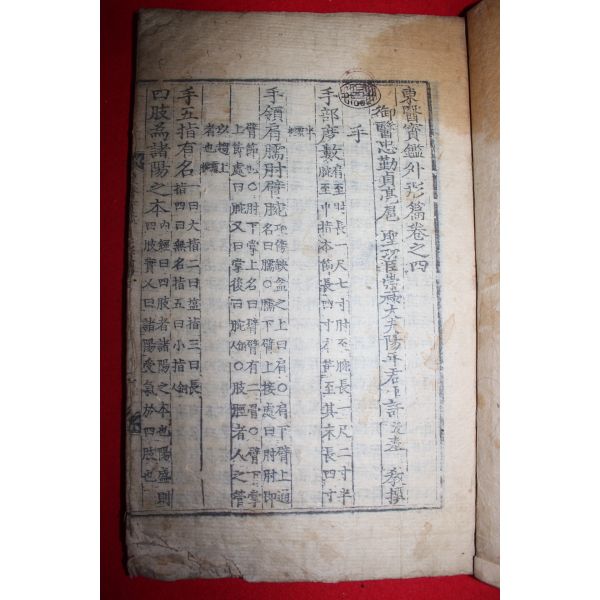 東醫寶鑑外形篇卷之四
御醫忠勤貞亮扈 聖功臣崇祿大夫陽平君臣許浚奉 敎撰
手
手部度數 肩至肘長一尺七寸肘至腕長一尺二寸半
腕至中指本節長四寸本節至其末長四寸
半 靈樞
手領肩臑肘臂腕 項傍缺盆之上曰肩○肩下臂上通
名曰臑○臑下臂上接處曰肘肘卽
臂節也○肘下掌上名曰臂臂有二骨○臂下掌
上節處曰腕又曰掌後曰腕 銅人○股脛者人之管
以趨上
者也 靈樞
手五指有名 一曰大指二曰盬指三曰長
指四曰無名指五曰小指 銅人
四肢爲諸陽之本 內經曰四肢者諸陽之本也陽盛則
四肢實又曰諸陽受氣於四肢也